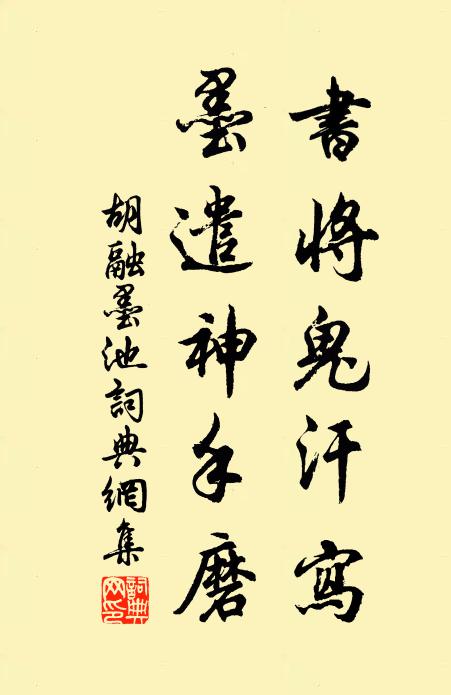 書將鬼汗寫
墨遣神手磨
胡融墨池詞典網集
詞典網印